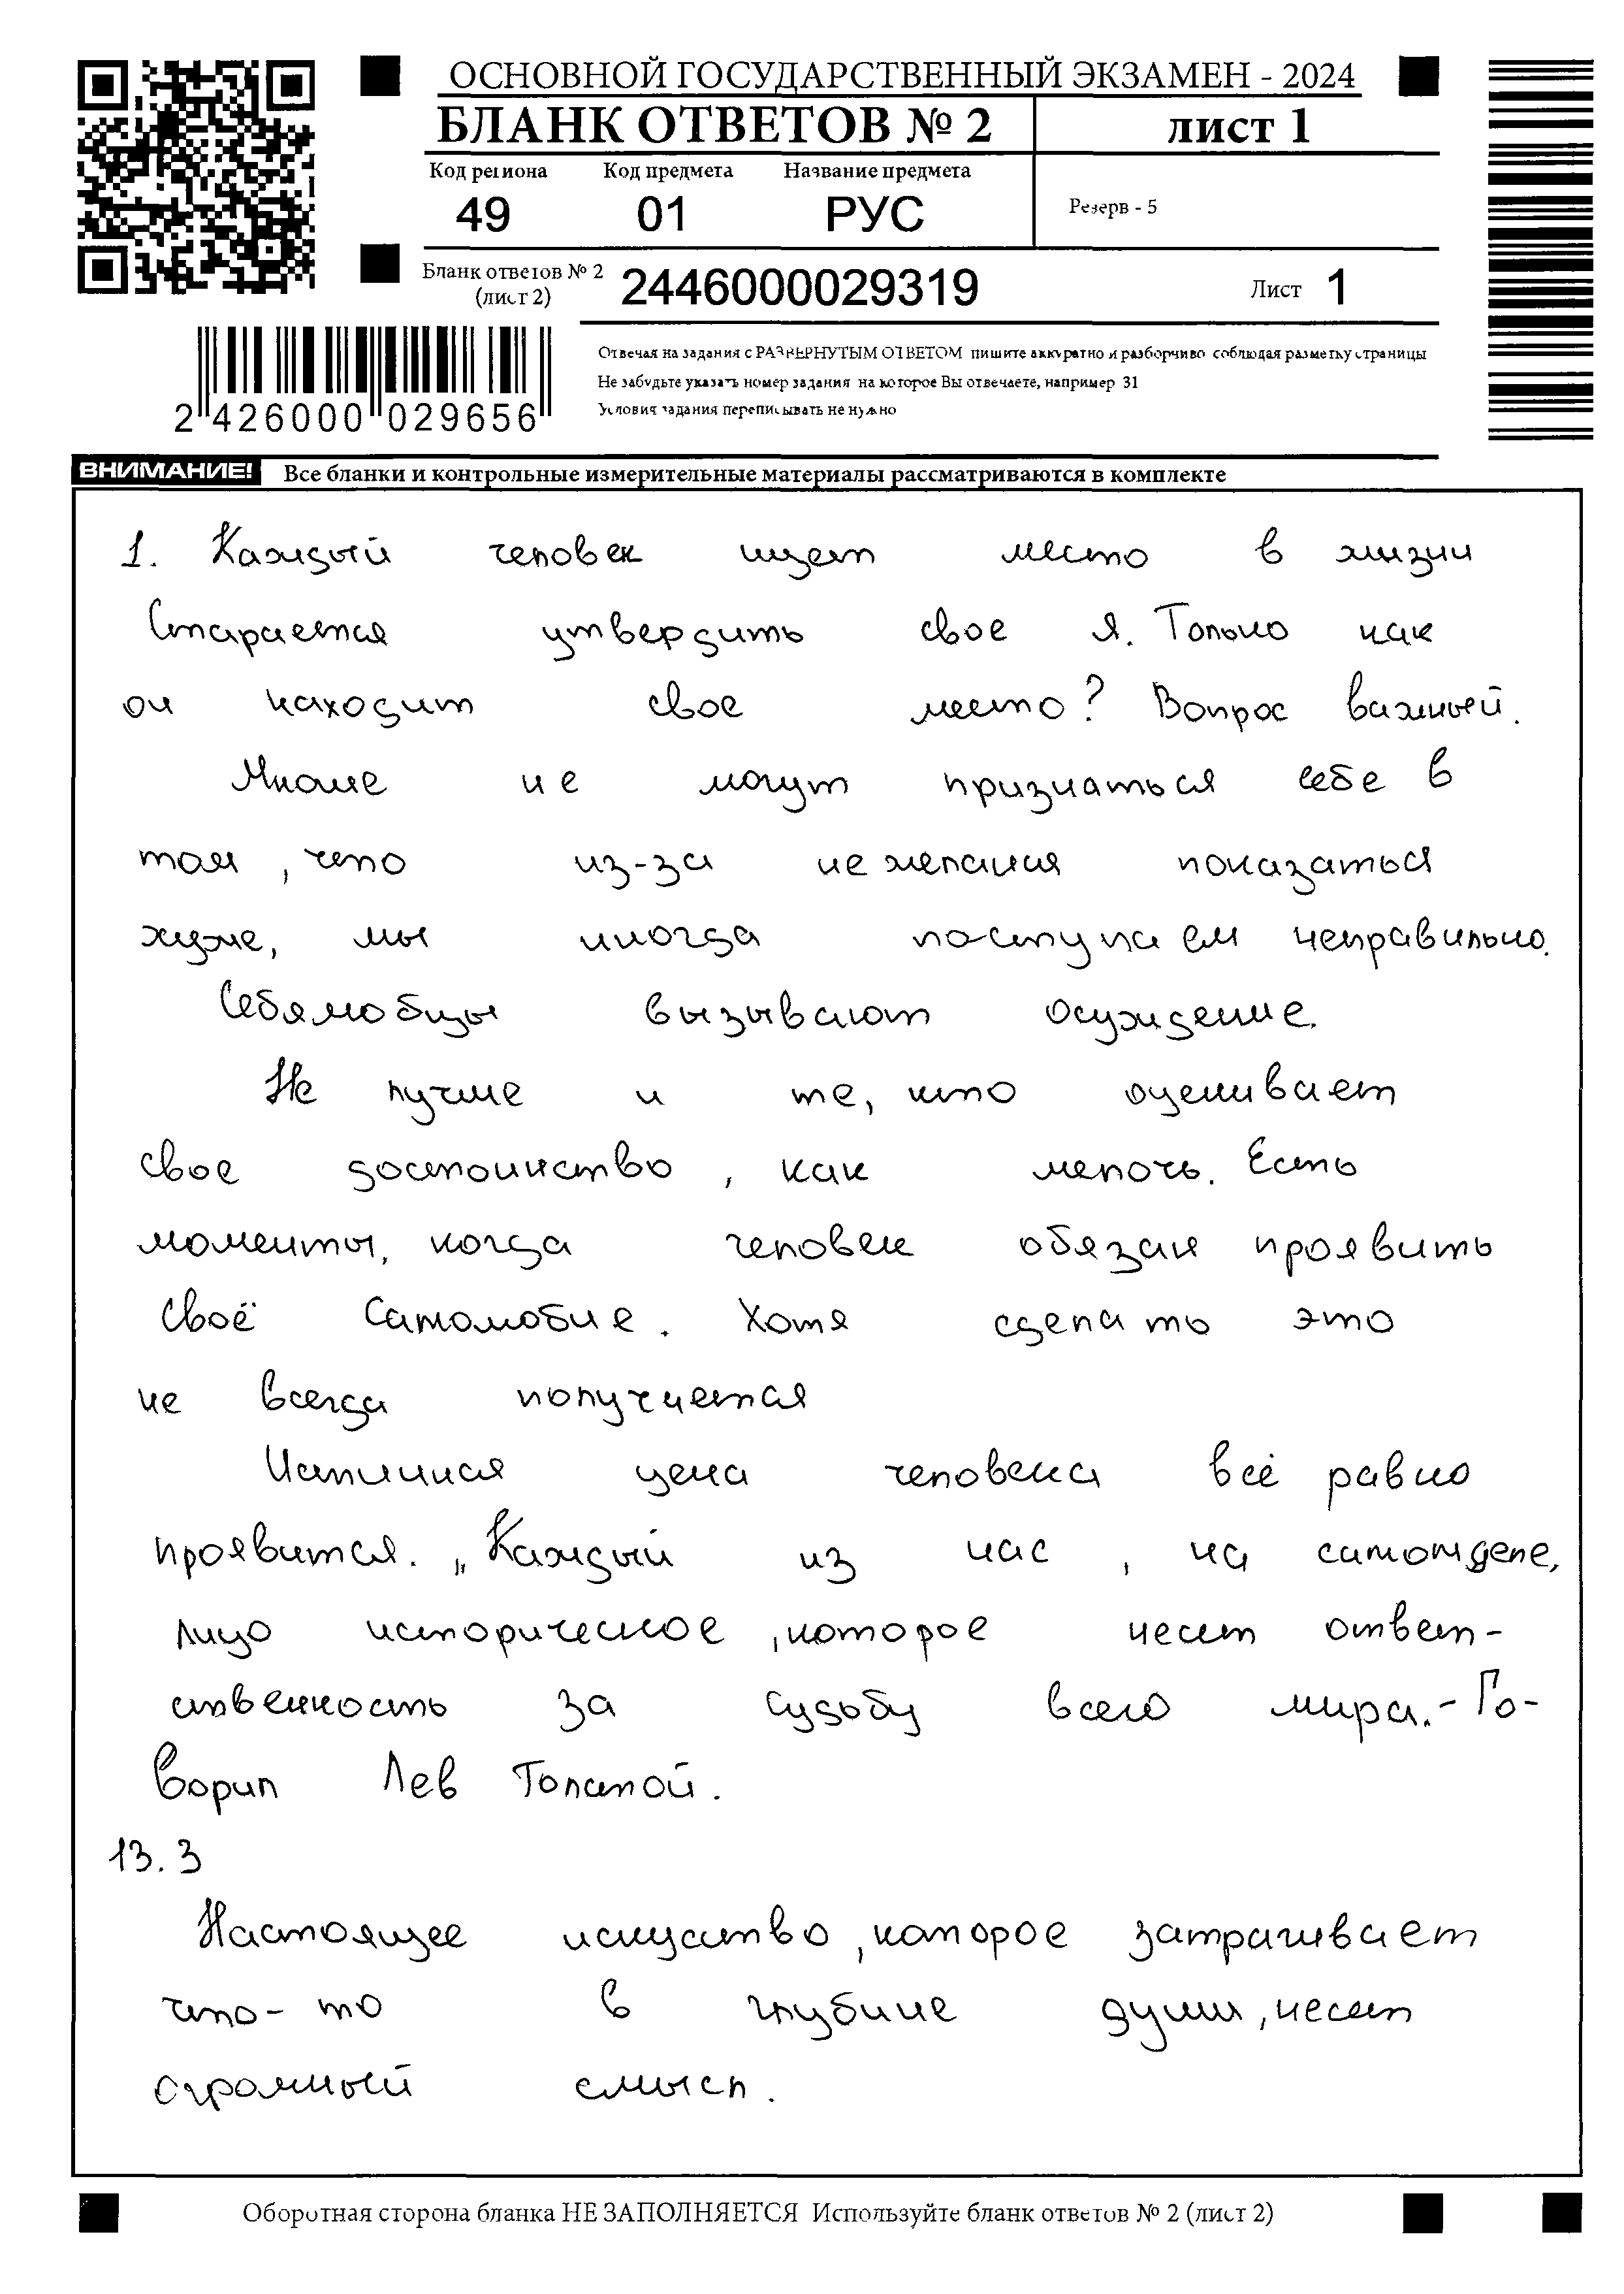 ОСНОВНОЙ ГОСУДАРСТВЕННЫЙ ЭКЗАМЕН - 2024
БЛАНК ОТВЕТОВ № 2
лист 1
Код региона Код предмета Название предмета
49 01 РУС
Резерв - 5
Бланк ответов № 2 (лист 2) 2446000029319
Лист 1
2 426000 029656
Отвечая на задания с РАЗВЕРНУТЫМ ОТВЕТОМ пишите аккуратно и разборчиво соблюдая разметку страницы
Не забудьте указать номер задания на которое Вы отвечаете, например 31
Условия задания переписывать не нужно
ВНИМАНИЕ! Все бланки и контрольные измерительные материалы рассматриваются в комплекте
1. Каждый человек ищет место в жизни
Старается утвердить свое я. Только как
он находит свое место? Вопрос важный.
Многие не могут признаться себе в
том, что из-за нежелания показаться
хуже, мы иногда поступаем неправильно.
Себялюбцы вызывают осуждение.
Не лучше и те, кто оценивает
свое достоинство, как мелочь. Есть
моменты, когда человек обязан проявить
своё Самолюбие. Хотя сделать это
не всегда получается
Истинная цена человека всё равно
проявится. „Каждый из нас, на самомделе,
лицо историческое, которое несет ответ-
ственность за судьбу всего мира. - Го-
ворил Лев Толстой.
13.3
Настоящее искуство, которое затрагивает
что-то в глубине души, несет
огромный смысл.
Оборотная сторона бланка НЕ ЗАПОЛНЯЕТСЯ Используйте бланк ответов № 2 (лист 2)